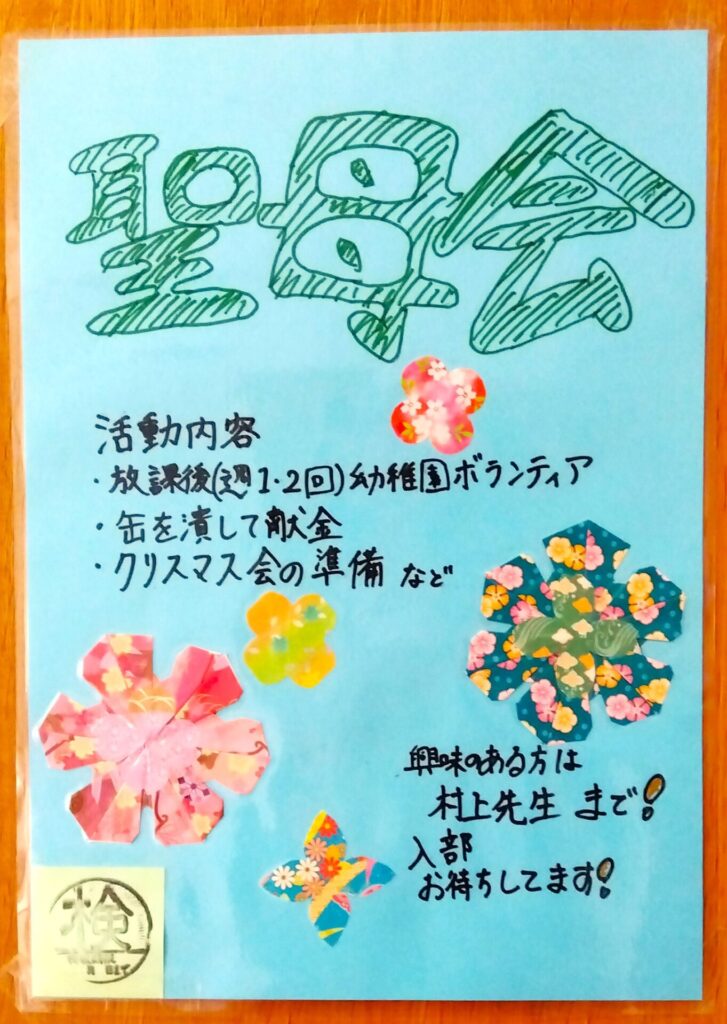 聖母会
活動内容
・放課後(週1・2回)幼稚園ボランティア
・缶を潰して献金
・クリスマス会の準備 など
興味のある方は
村上先生 まで!
入部
お待ちしてます!
検